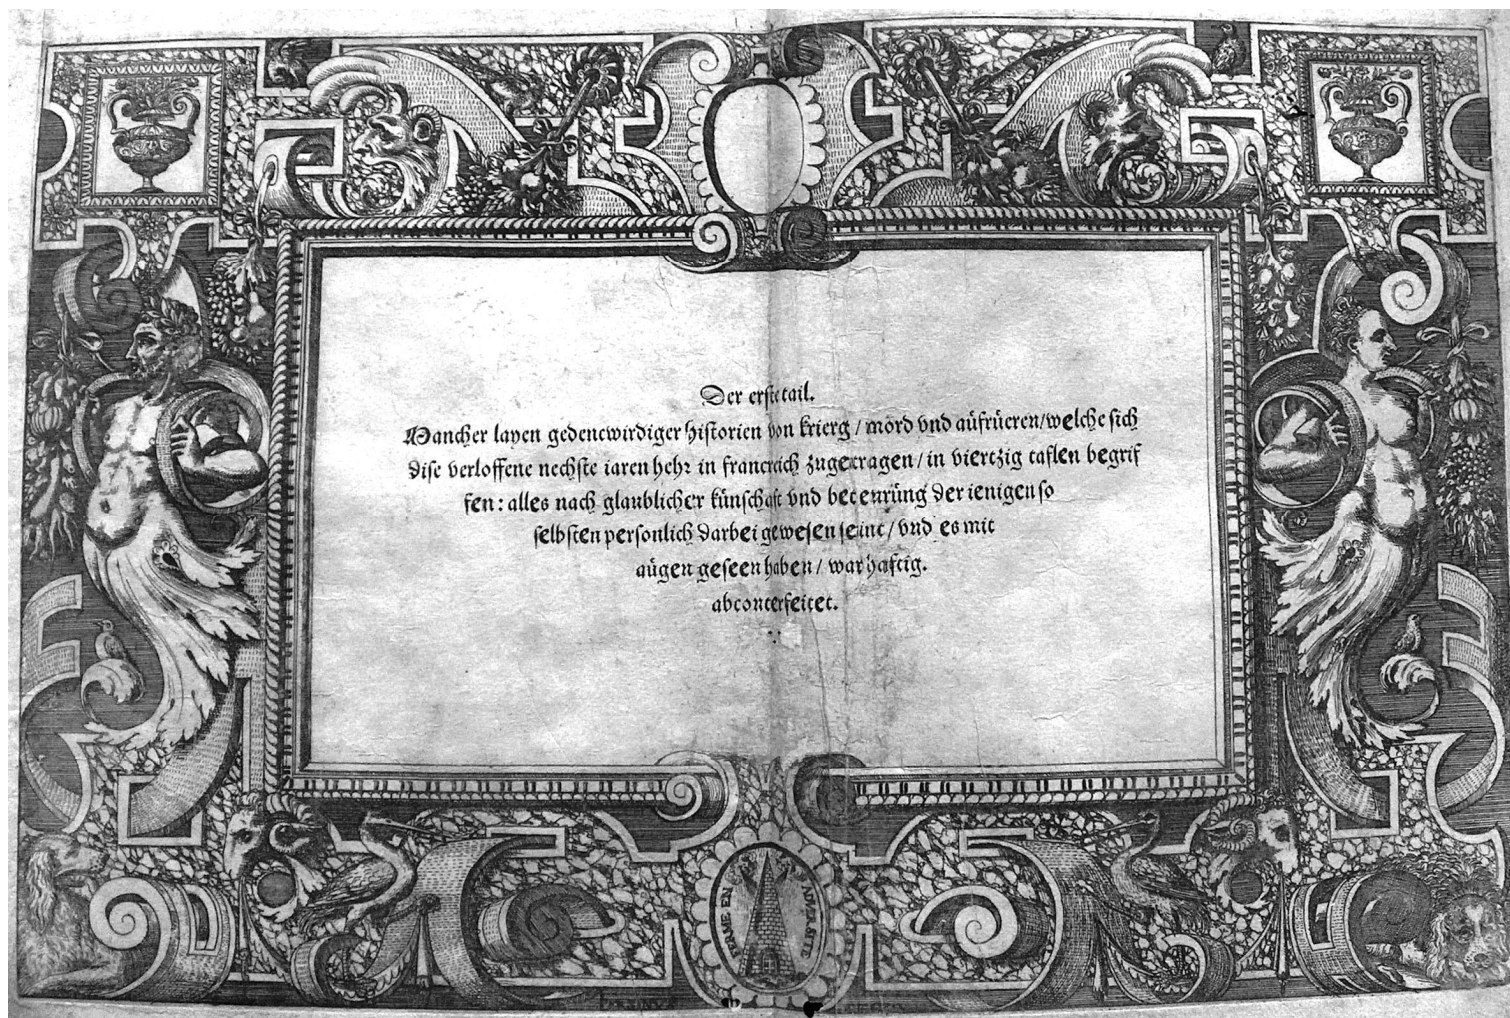 Der erste tail.
Mancher layen gedencwirdiger historien von krierg / mord vnd aüfrüeren / welche sich
dise verloffene nechste iaren hehr in francreich zugetragen / in viertzig taflen begrif
fen : alles nach glaublicher künschaft vnd beteurüng der ienigen so
selbsten personlich darbei gewesen seint / vnd es mit
aügen geseen haben / warhaftig.
abconterfeitet.
FERME EN ADVERSITE